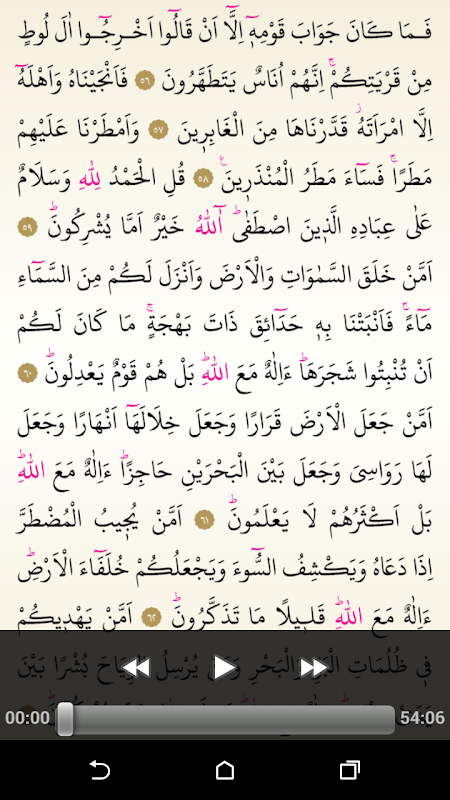 فَمَا كَانَ جَوَابَ قَوْمِهٖٓ اِلَّٓا اَنْ قَالُٓوا اَخْرِجُٓوا اٰلَ لُوطٍ
مِنْ قَرْيَتِكُمْۚ اِنَّهُمْ اُنَاسٌ يَتَطَهَّرُونَ ٥٦ فَاَنْجَيْنَاهُ وَاَهْلَهُٓ
اِلَّا امْرَاَتَهُۘ قَدَّرْنَاهَا مِنَ الْغَابِرٖينَ ٥٧ وَاَمْطَرْنَا عَلَيْهِمْ
مَطَرًاۚ فَسَٓاءَ مَطَرُ الْمُنْذَرٖينَ ٥٨ قُلِ الْحَمْدُ لِلّٰهِ وَسَلَامٌ
عَلٰى عِبَادِهِ الَّذٖينَ اصْطَفٰىۜ آٰللّٰهُ خَيْرٌ اَمَّا يُشْرِكُونَۜ ٥٩
اَمَّنْ خَلَقَ السَّمٰوَاتِ وَالْاَرْضَ وَاَنْزَلَ لَكُمْ مِنَ السَّمَٓاءِ
مَٓاءًۚ فَاَنْبَتْنَا بِهٖ حَدَٓائِقَ ذَاتَ بَهْجَةٍۚ مَا كَانَ لَكُمْ
اَنْ تُنْبِتُوا شَجَرَهَاۜ ءَاِلٰهٌ مَعَ اللّٰهِۜ بَلْ هُمْ قَوْمٌ يَعْدِلُونَۜ ٦٠
اَمَّنْ جَعَلَ الْاَرْضَ قَرَارًا وَجَعَلَ خِلَالَهَٓا اَنْهَارًا وَجَعَلَ
لَهَا رَوَاسِىَ وَجَعَلَ بَيْنَ الْبَحْرَيْنِ حَاجِزًاۜ ءَاِلٰهٌ مَعَ اللّٰهِۜ
بَلْ اَكْثَرُهُمْ لَا يَعْلَمُونَۜ ٦١ اَمَّنْ يُجٖيبُ الْمُضْطَرَّ
اِذَا دَعَاهُ وَيَكْشِفُ السُّٓوءَ وَيَجْعَلُكُمْ خُلَفَٓاءَ الْاَرْضِۜ
ءَاِلٰهٌ مَعَ اللّٰهِۜ قَلٖيلًا مَا تَذَكَّرُونَۜ ٦٢ اَمَّنْ يَهْدٖيكُمْ
فٖى ظُلُمَاتِ الْبَرِّ وَالْبَحْرِ وَمَنْ يُرْسِلُ الرِّيَاحَ بُشْرًا بَيْنَ
00:00 54:06